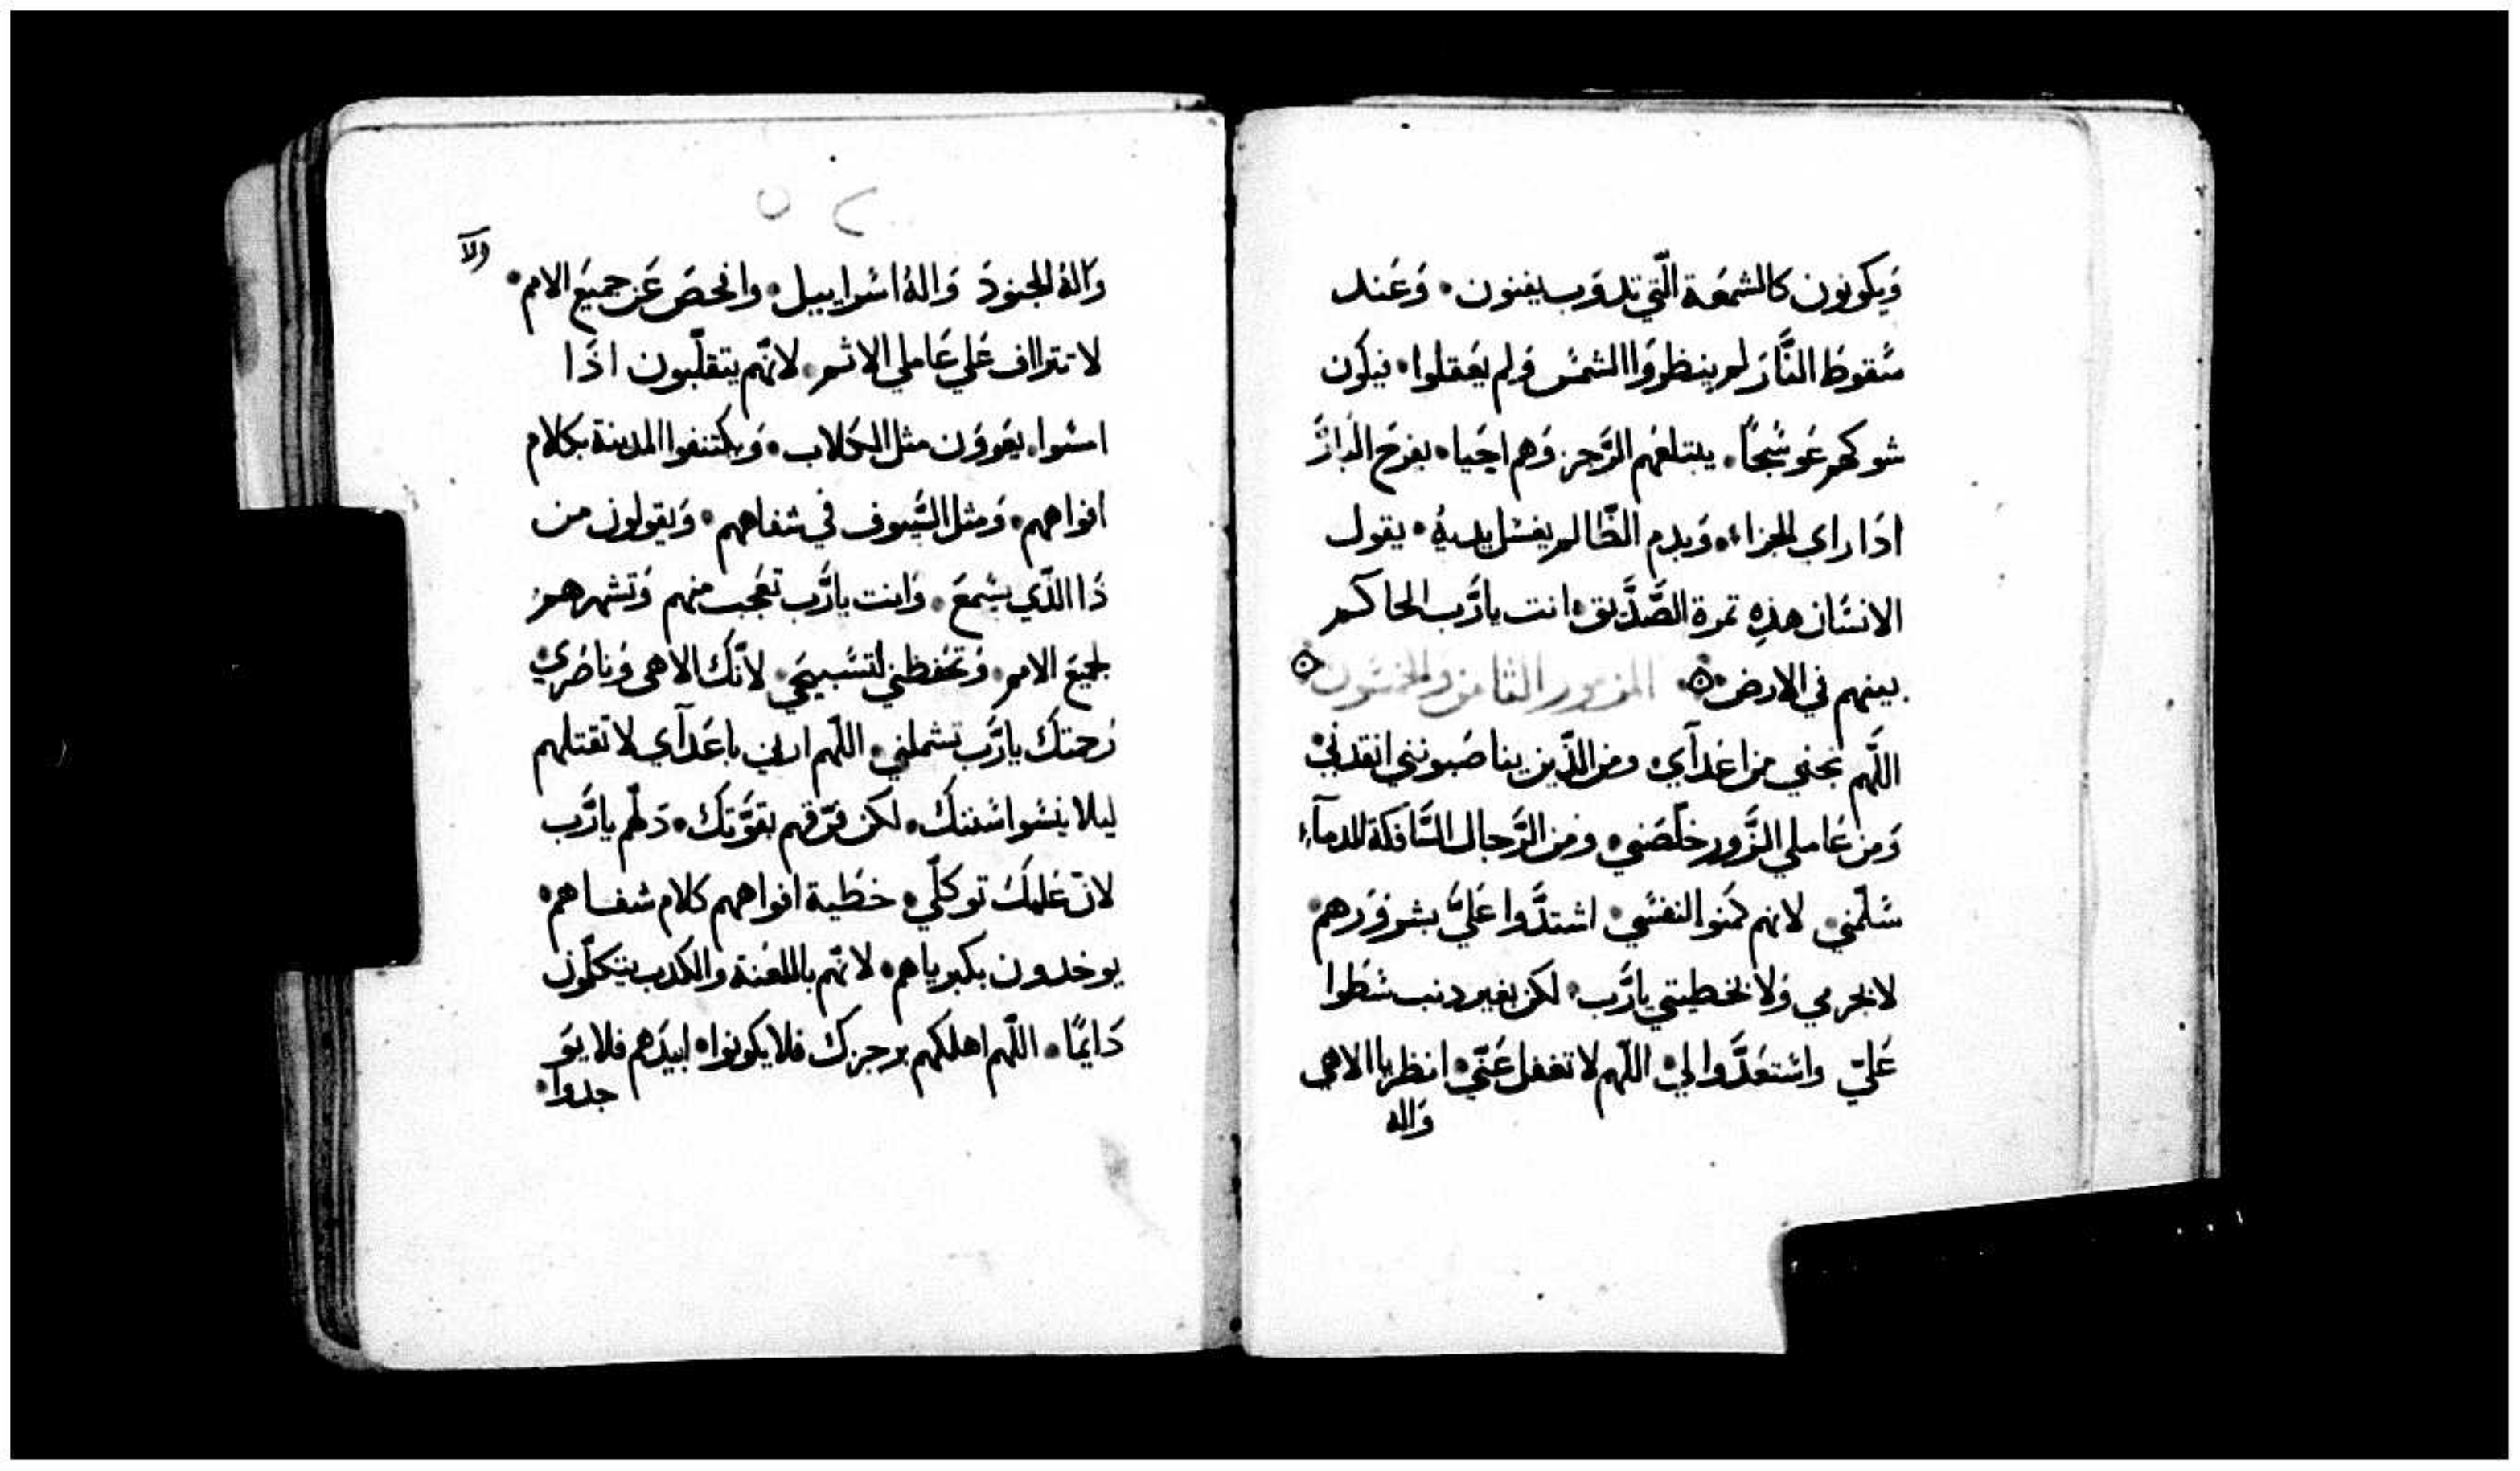 وَيكونون كالشمعَة الّتي تدوَب يفنون • وَعَند
سَقوط النَّار لم ينظروَا الشمسَ وَلم يعَقلوا • فيكون
شوكهم عَوسَجًا • يبتلعَهم الرَّجز وَهم احيا • يفرح البار
ادَا راي الجزاء • وَبدم الظّالم يغسَل يديهُ • يقول
الانسَان هذهِ تمرة الصَّدَّيق • انت يارَّب الحاكم
بينهم في الارض • المزمور الثامن والخمسَون
اللّهم نجني من اعَدآي • ومن الذّين يناصَبونني انقدني
وَمن عَاملي الزَّور خلّصَني • ومن الرَّجال السَّافكة للدمآء
سَلّمني • لانهم كمنوا لنفسَي • اشتدَّوا عَليَّ بشروَرهم •
لا بجرمي وَلا بخطيتي يارَّب • لكن بغير دنب سَطَوا
عَليّ واسَتعَدَّوا لي • اللّهم لا تغفل عَنّي • انظر يا الاهي
وَاله
٥٢
ولا
وَالهُ الجنودَ وَالهُ اسَراييل • وافحصَ عَن جميعَ الامم •
لا تتراف عَلي عَاملي الاثم • لانّهم يتقلّبون اذَا
امسَوا • يعَووَن مثل الكلاب • وَيكتنفوا المدينة بكلام
افواههم • وَمثل السَّيوف في شفاههم • وَيقولون من
ذَا الذّي يسَمعَ • وَانت يارَّب تعَجب منهم وَتشهرهم
لجميعَ الامم • وَتحَفظني لتسَبيحَي • لانّك الاهي وَناصَري
رَحمتك يارَّب تشملني • اللّهم ارني باعَدآي لا تقتلهم
ليلا ينسَوا سَننك • لكن فرّقهم بقوَّتك • دَلّهم يارَّب
لانّ عَليك توكلّي • خطية افواههم كلام شفاهم •
يوخدون بكبرياهم • لانّهم باللعَنة والكدب يتكلّمون
دَايمًا • اللّهم اهلكهم برجزك فلا يكونوا • ابيدَهم فلا يوَ
جدوا •